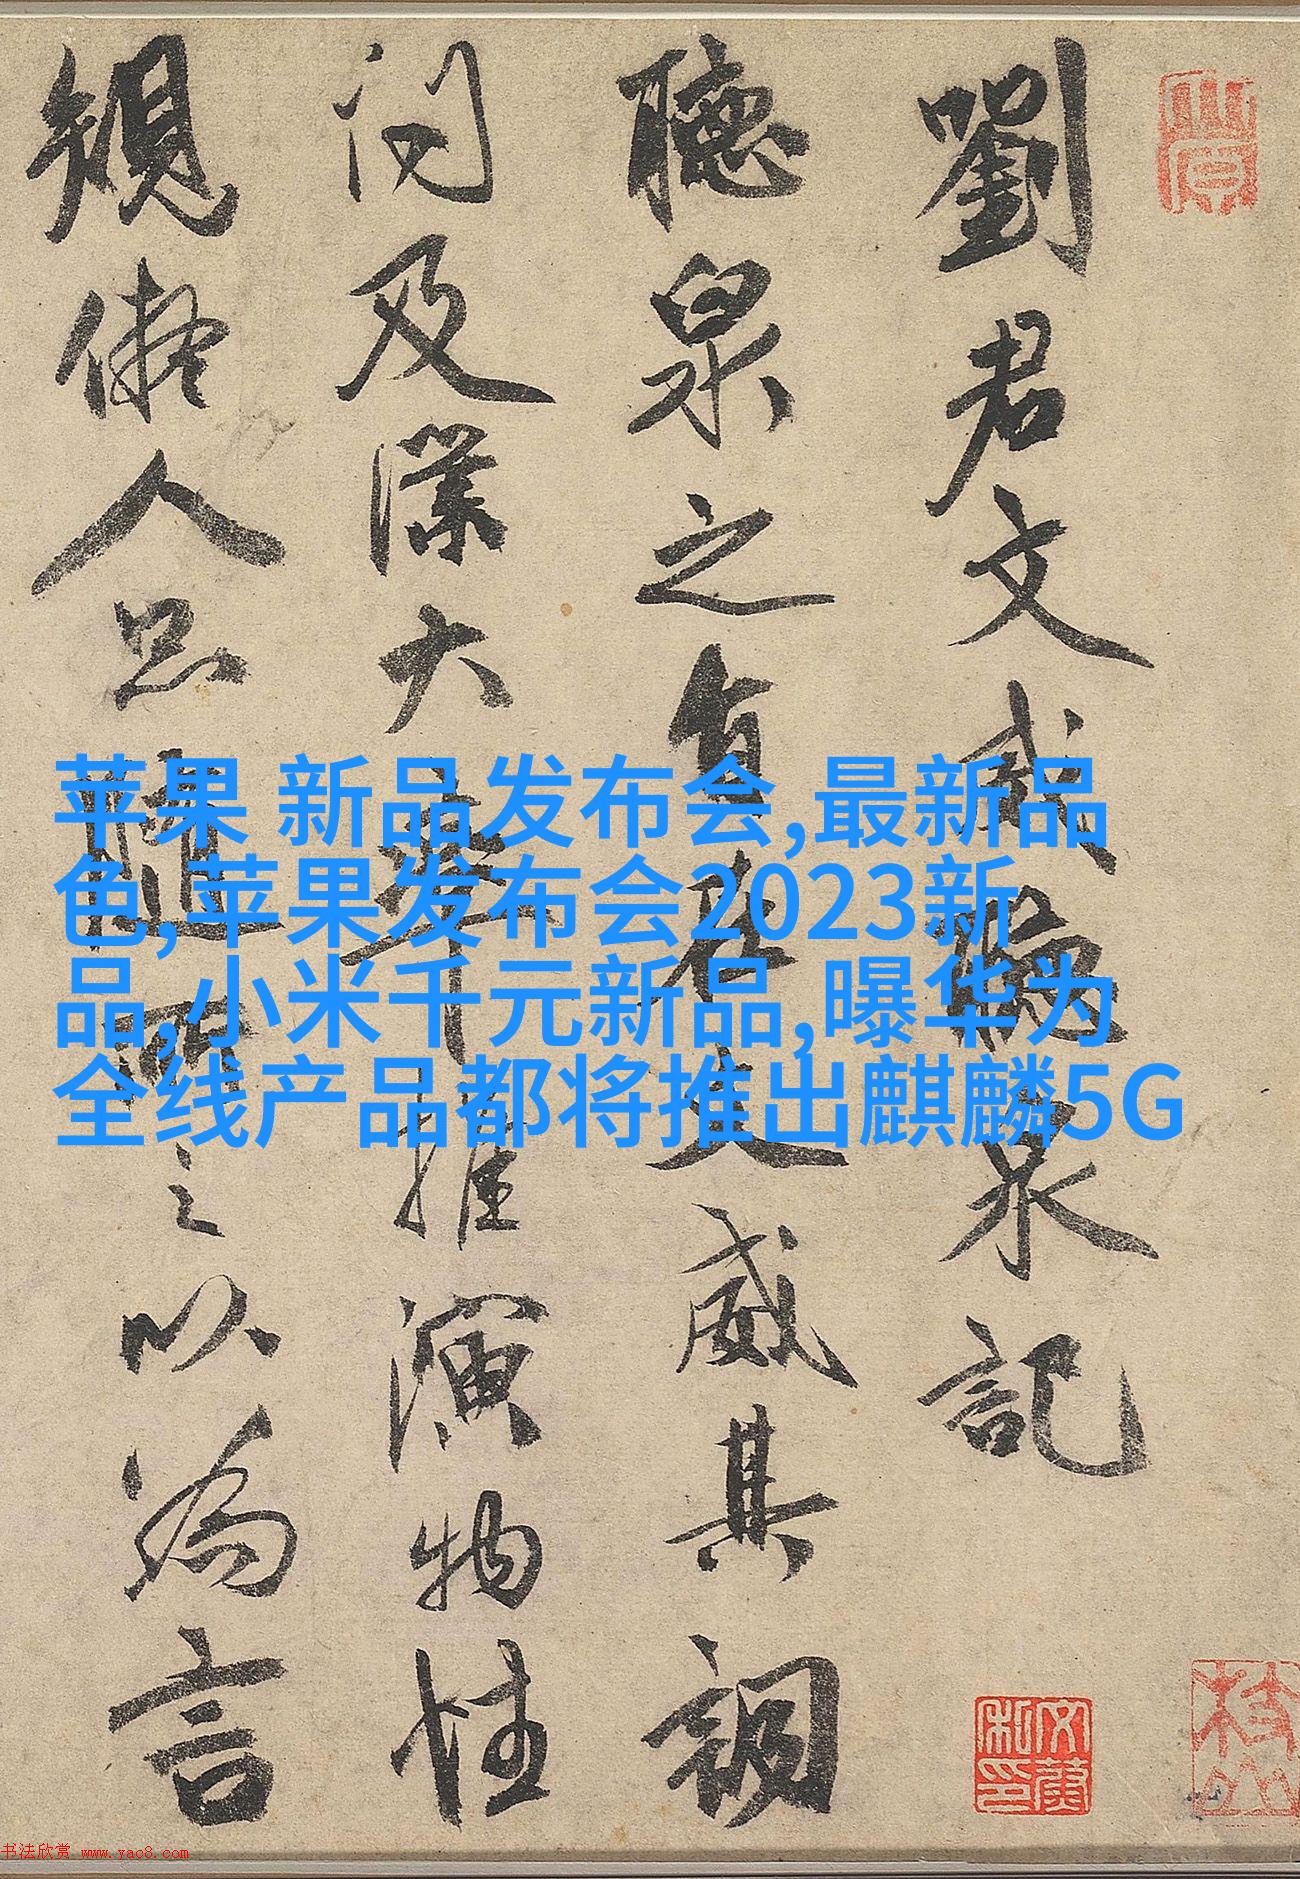 劉君文威聽泉記
聽泉之有在文威其調
及大率推演物性
規儗人品隨之以為言
苹果 新品发布会,最新品
色,苹果发布会2023新
品,小米千元新品,曝华为
全线产品都将推出麒麟5G
书法欣赏 www.yac8.com